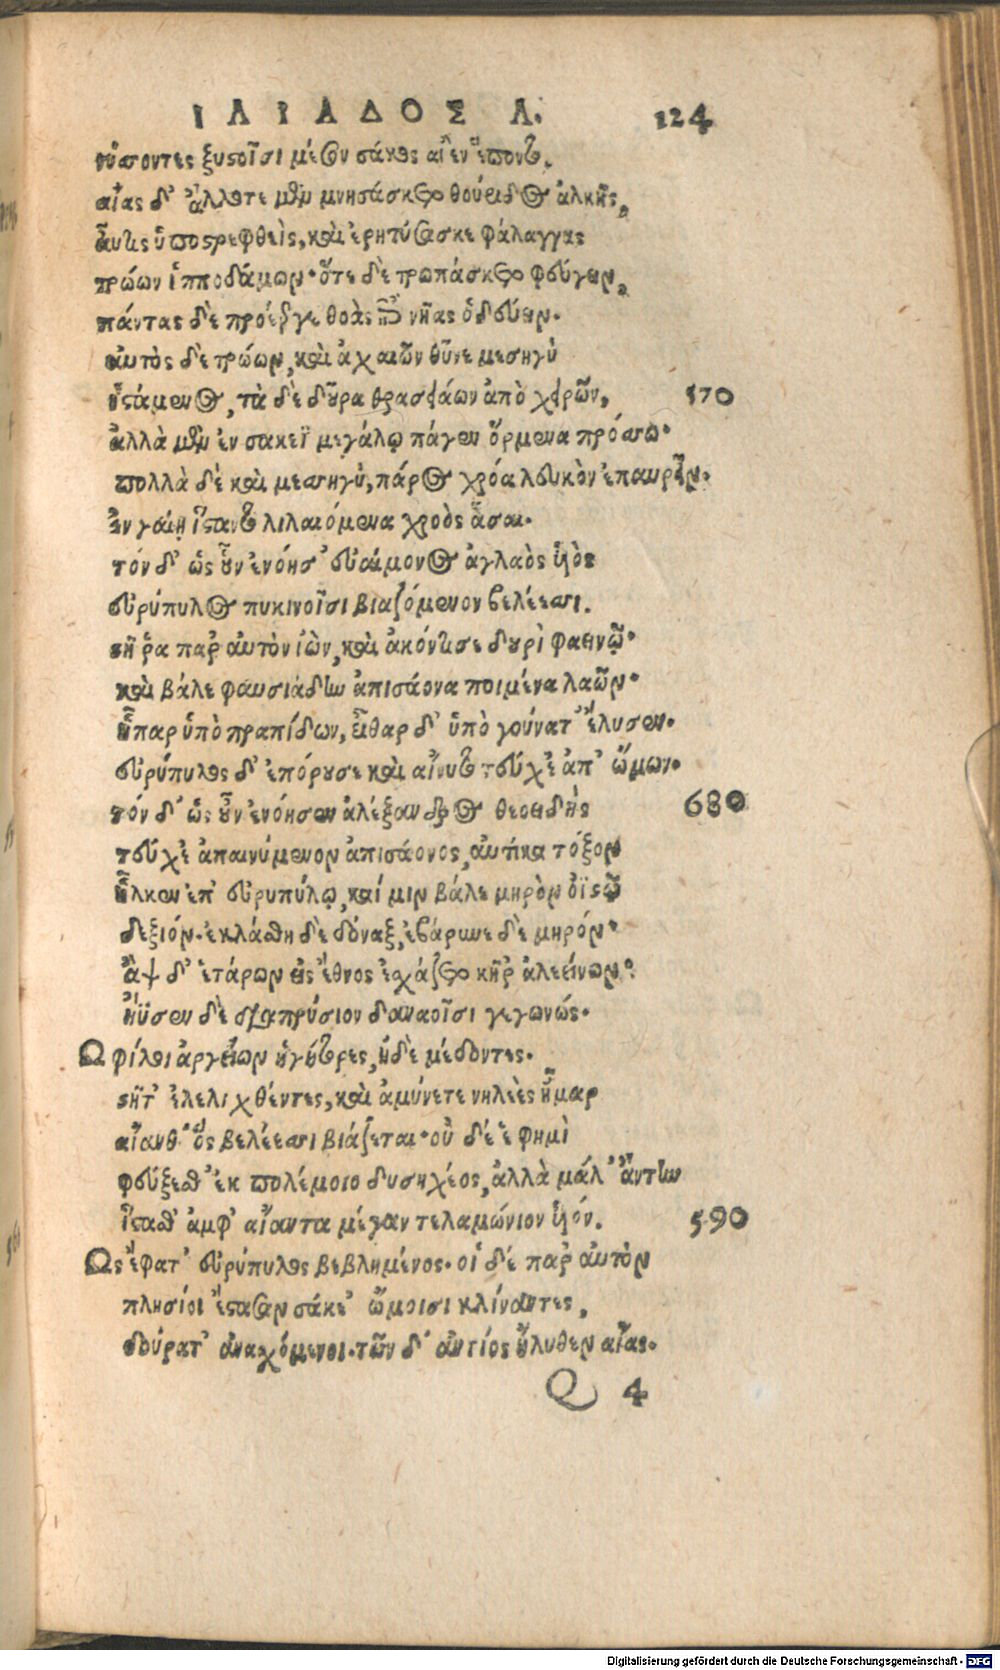 ΙΛΙΑΔΟΣ Λ. 124
νύσσοντες ξυστοῖσι μέσον σάκος αἰὲν ἕποντο.
αἴας δ' ἄλλοτε μὲν μνησάσκετο θούριδος ἀλκῆς,
αὖτις ὑποστρεφθεὶς, καὶ ἐρητύσασκε φάλαγγας
τρώων ἱπποδάμων· ὅτε δὲ τρωπάσκετο φεύγειν,
πάντας δὲ προέεργε θοὰς ἐπὶ νῆας ὁδεύειν.
αὐτὸς δὲ τρώων, καὶ ἀχαιῶν θῦνε μεσηγὺ
ἱστάμενος, τὰ δὲ δοῦρα θρασειάων ἀπὸ χειρῶν, 570
ἀλλὰ μὲν ἐν σακεῒ μεγάλῳ πάγεν ὄρμενα πρόσσω·
πολλὰ δὲ καὶ μεσσηγὺ, πάρος χρόα λευκὸν ἐπαυρεῖν.
ἐν γαίῃ ἵσταντο λιλαιόμενα χροὸς ἆσαι.
τόν δ' ὡς οὖν ἐνόησ' εὐαίμονος ἀγλαὸς ὑιὸς
εὐρύπυλος πυκινοῖσι βιαζόμενον βελέεσσι.
στῆ ῥα παρ' αὐτὸν ἰὼν, καὶ ἀκόντισε δουρὶ φαεινῷ·
καὶ βάλε φαυσιάδην ἀπισάονα ποιμένα λαῶν·
ἧπαρ ὑπὸ πραπίδων, εἶθαρ δ' ὑπὸ γούνατ' ἔλυσεν.
εὐρύπυλος δ' ἐπόρουσε καὶ αἴνυτο τεύχε' ἀπ' ὤμων.
τόν δ' ὡς οὖν ἐνόησεν ἀλέξανδρος θεοειδὴς 680
τεύχε' ἀπαινύμενον ἀπισάονος, αὐτίκα τόξον
ἕλκεν ἐπ' εὐρυπύλῳ, καί μιν βάλε μηρὸν ὀϊστῷ
δεξιόν. ἐκλάσθη δὲ δόναξ, ἐβάρυνε δὲ μηρόν·
ἂψ δ' ἑτάρων εἰς ἔθνος ἐχάζετο κῆρ' ἀλεείνων·
ἤϋσεν δὲ διαπρύσιον δαναοῖσι γεγωνώς.
Ω φίλοι ἀργείων ἡγήτορες, ἠδὲ μέδοντες.
στῆτ' ἐλελιχθέντες, καὶ ἀμύνετε νηλεὲς ἦμαρ
αἴανθ' ὃς βελέεσσι βιάζεται· οὐ δέ ἑ φημὶ
φεύξεσθ' ἐκ πολέμοιο δυσηχέος, ἀλλὰ μάλ' ἄντην
ἵστασθ' ἀμφ' αἴαντα μέγαν τελαμώνιον ὑιόν. 590
Ως ἔφατ' εὐρύπυλος βεβλημένος. οἱ δέ παρ' αὐτὸν
πλησίοι ἔστασαν σάκε' ὤμοισι κλίναντες,
δούρατ' ἀνασχόμενοι. τῶν δ' ἀντίος ἤλυθεν αἴας.
Q 4
Digitalisierung gefördert durch die Deutsche Forschungsgemeinschaft - DFG